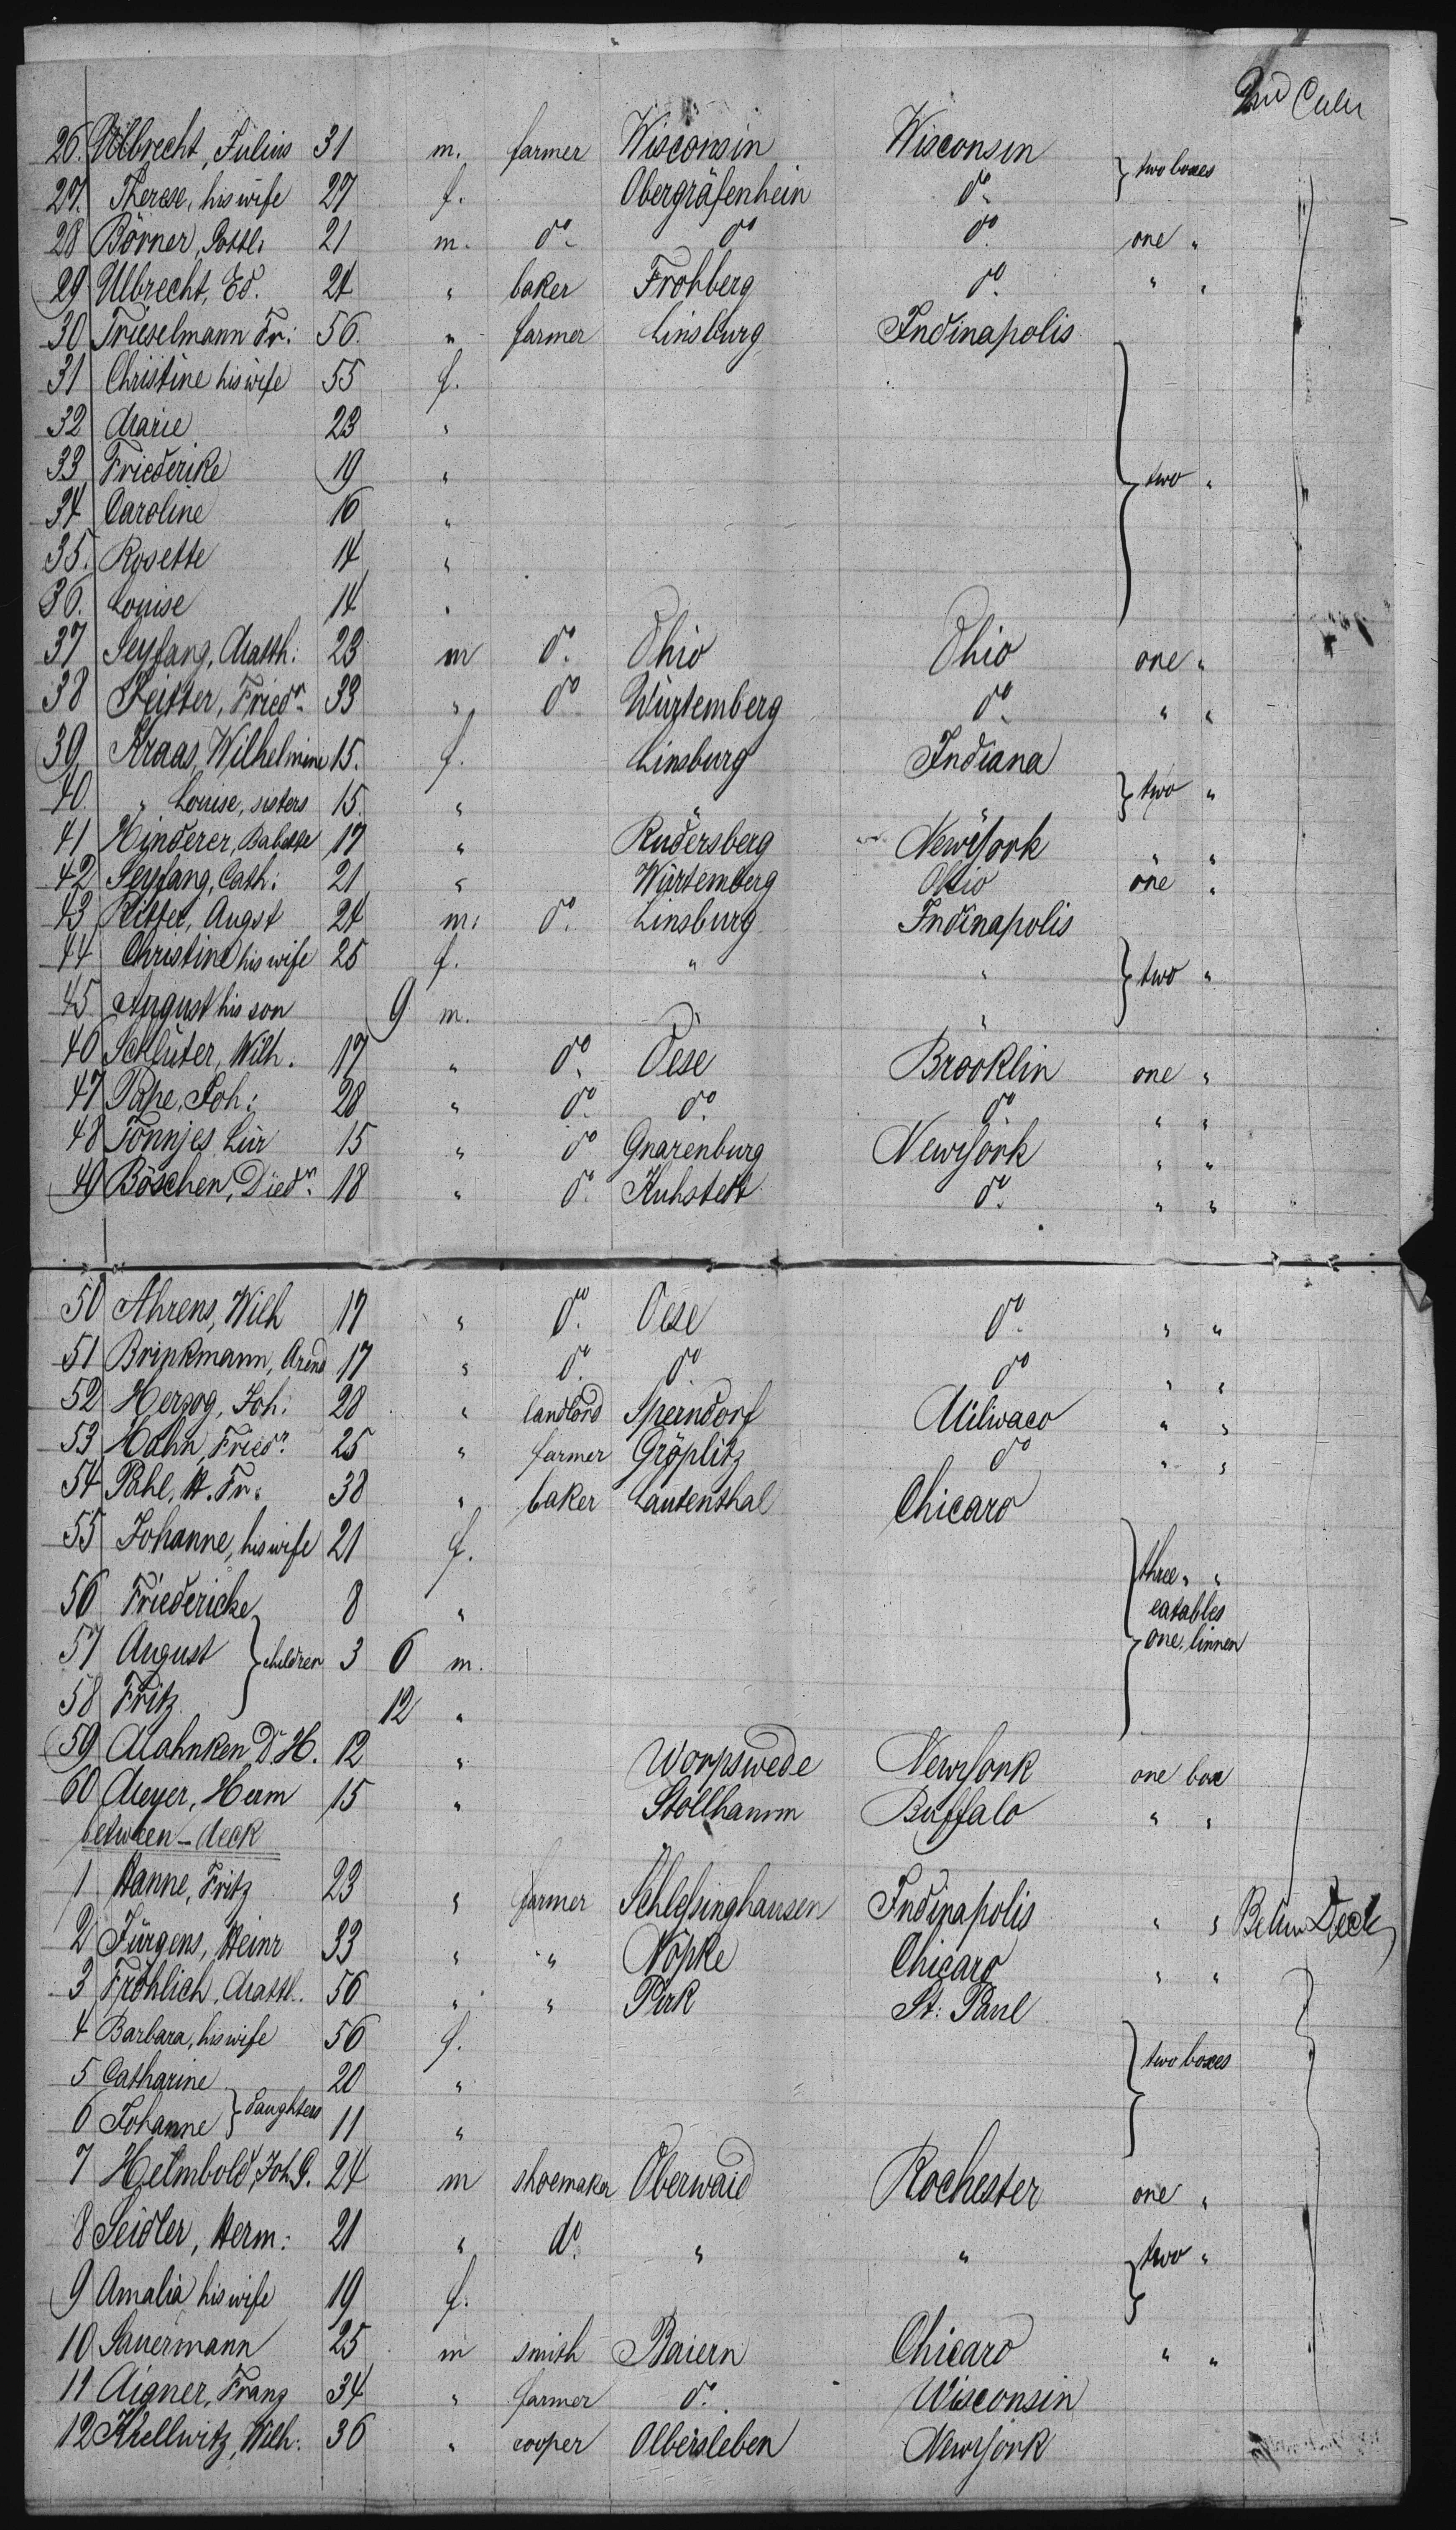 2nd Cabin
26. Ulbrecht, Julius 31 m. farmer Wisconsin Wisconsin } two boxes
27. Therese, his wife 27 f. Obergräfenhein do.
28 Börner, Gottl: 21 m. do. do do. one "
29 Ulbrecht, Ed. 24 " baker Frohberg do. " "
30 Trieselmann Fr: 56. " farmer Linsburg Indinapolis
31 Christine his wife 55 f.
32 Marie 23 "
33 Friederike 19 " } two "
34 Caroline 16 "
35. Rosette 14 "
36. Louise 14 "
37 Seyfang, Matth: 23 m do. Ohio Ohio one "
38 Reitter, Friedr. 33 " do Würtemberg do. " "
39 Kraas, Wilhelmine 15. f. Linsburg Indiana
40. " Louise, sisters 15. " " } two "
41 Hinderer, Babette 17 " Rudersberg NewYork " "
42 Seyfang, Cath: 21 " Würtemberg Ohio one "
43 Ritter, Augst 24 m. do. Linsburg Indinapolis
44 Christine his wife 25 f. " " } two "
45 August his son 9 m. "
46 Schlüter, Wilh. 17 " do. Oese Brooklin one "
47 Pape, Joh: 28 " do. do. do. " "
48 Tönnjes, Lür 15 " do Gnarenburg NewYork " "
49 Böschen, Diedr. 18 " do. Kuhstett do. " "
50 Ahrens, Wilh 17 " do. Oese do. " "
51 Brinkmann, Arend 17 " do. do. do " "
52 Herzog, Joh: 28 " landlord Sperndorf Milwaco " "
53 Hahn, Friedr. 25 " farmer Gröplitz do " "
54 Pahl, H. Fr: 38 " baker Lautenthal Chicaro
55 Johanne, his wife 21 f. } three " "
56 Friedericke 8 " eatables
57 August } children 3 6 m. one linnen
58 Fritz 12 "
59 Mahnken D. H. 12 " Worpswede NewYork one box
60 Meyer, Herm 15 " Stollhamm Buffalo " "
between-deck
1 Hanne, Fritz 23 " farmer Schlessinghausen Indinapolis " " Betwn Deck
2 Jürgens, Heinr 33 " " Nöpke Chicaro " "
3 Fröhlich, Matth. 56 " " Pirk St: Paul
4 Barbara, his wife 56 f. } two boxes
5 Catharine 20 "
6 Johanne } daughters 11 "
7 Helmbold, Joh. G. 24 m shoemaker Oberwaid Rochester one "
8 Seidler, Herm: 21 " do. " " } two "
9 Amalia his wife 19 f.
10 Sauermann 25 m smith Baiern Chicaro " "
11 Aigner, Franz 34 " farmer do. Wisconsin
12 Krellwitz, Wilh. 36 " cooper Olbersleben NewYork